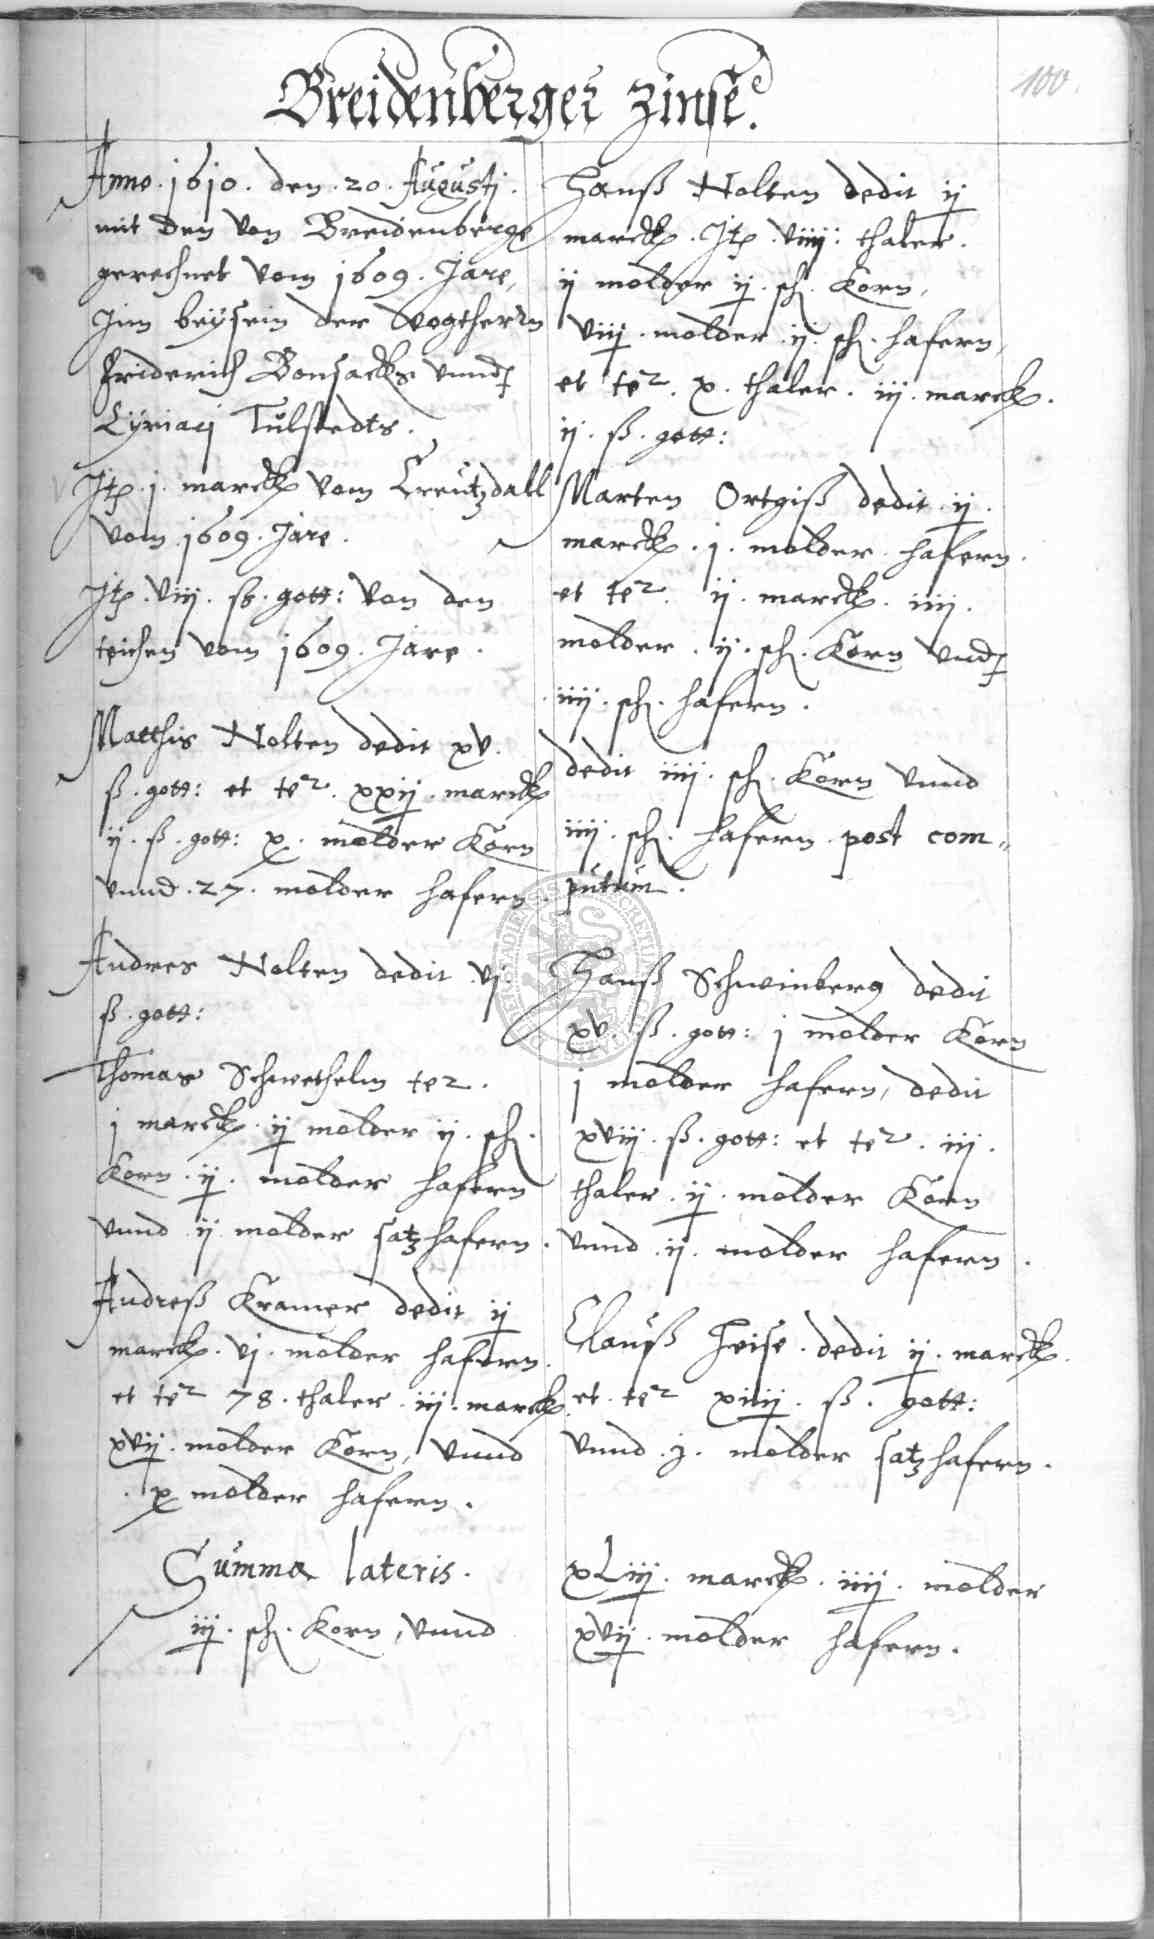 Breidenberger zinse.
100.
Anno. 1610. den. 20. Augustj.
mit den von Breidenberge
gerechnet vom 1609. Jare,
Inn beÿsein der Vogtherrn
Friderich Bonsacks vnnd
Cyriacj Tulstedts.
Itp. j. marck vom Creutzdall
vom 1609. Jare.
Itp. viij. sß. gott: von den
teichen vom 1609. Jare.
Matthis Nolten dedit xv.
ß. gott: et ter. xxij. marck
ij. ß. gott: x. molder Korn
vnnd. 27. molder hafern.
Andres Nolten dedit vj.
ß. gott:
Thomas Schwethelm ter.
j marck. ij molder ij. sch.
Korn. ij. molder hafern
vnnd ij molder satzhafern.
Andreß Kramer dedit ij
marck. vj. molder hafern.
et ter 78. thaler. iij. marck
xvij. molder Korn, vnnd
. x molder hafern.
Hanß Nolten dedit ij
marck. Itp. viiij. thaler.
ij molder ij. sch. Korn,
viij. molder. ij. sch. hafern,
et ter. x. thaler. iij. marck.
ij. ß. gott:
Marten Ortgiß dedit. ij.
marck. j. molder hafern.
et ter. ij. marck. iiij.
molder. ij. sch. Korn vnd
iiij. sch. hafern.
dedit iiij. sch. Korn vnnd
iiij. sch. hafern. post com„
putum.
Hanß Schweinberg dedit
xv. ß. gott: j molder Korn
j molder hafern, dedit
xviij. ß. gott: et ter. iij.
thaler. ij. molder Korn
vnnd. ij. molder hafern.
Clauß Heise. dedit ij. marck.
et. ter xiiij. ß. gott:
vnnd. j. molder satzhafern.
Summa lateris. xLiij. marck. iiij. molder
iij. sch. Korn, vnnd xvij. molder hafern.